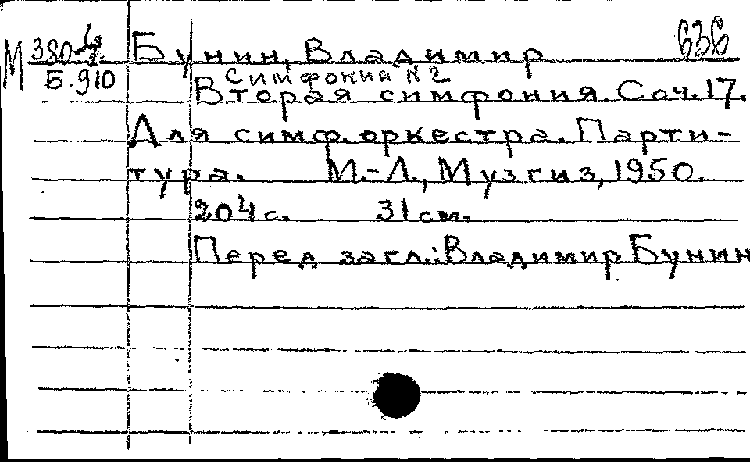 М 380-4/2 Бунин, Владимир 636
Б.910 Симфония N2
Вторая симфония. Соч.17.
Для симф.оркестра. Парти-
тура. М.-Л., Музгиз, 1950.
204 с. 31 см.
Перед загл.: Владимир Бунин